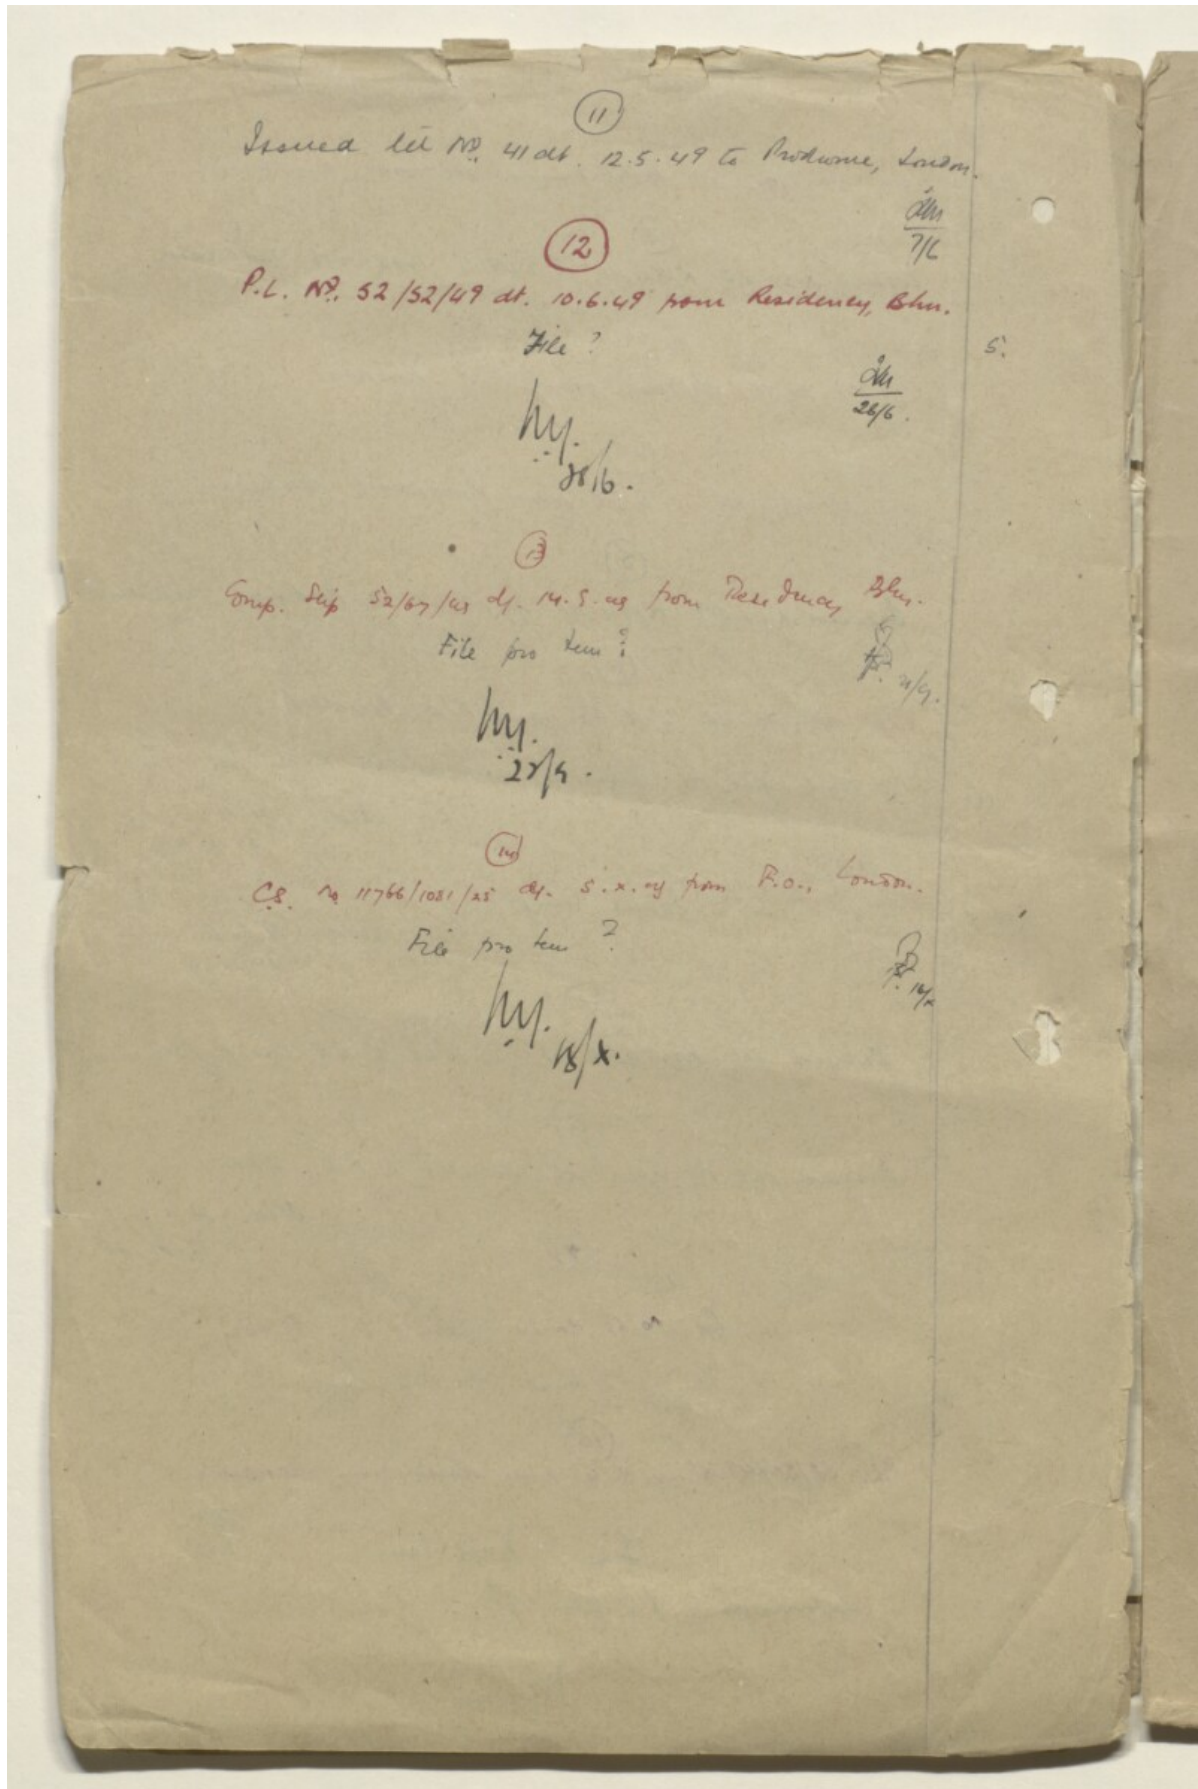 11
Issued let No. 41 dt. 12.5.49 to Prodrome, London.
7/6
12
P.L. No. 52/52/49 dt. 10.6.49 from Residency, Bhn.
File ?
5.
26/6.
28/6.
13
Comp. Slip 52/67/49 dt. 14.9.49 from Residency Bhn.
File pro tem ?
21/9.
22/9.
14
C.S. No 11766/1081/25 dt. 5.x.49 from F.O., London.
File pro tem ?
16/x
18/x.